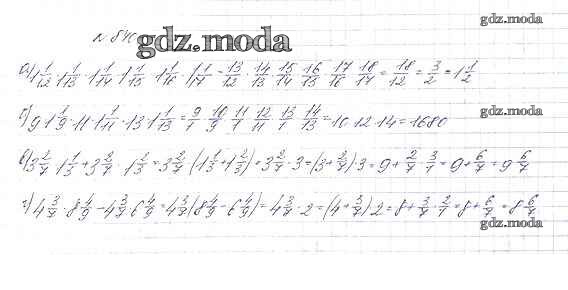 № 840
gdz.moda
gdz.moda
а) 1 1/12 · 1 1/13 · 1 1/14 · 1 1/15 · 1 1/16 · 1 1/17 = 13/12 · 14/13 · 15/14 · 16/15 · 17/16 · 18/17 = 18/12 = 3/2 = 1 1/2
gdz.moda
б) 9 · 1 1/9 · 11 · 1 1/11 · 13 · 1 1/13 = 9/1 · 10/9 · 11/1 · 12/11 · 13/1 · 14/13 = 10 · 12 · 14 = 1680
в) 3 2/7 · 1 1/3 + 3 2/7 · 1 2/3 = 3 2/7 · (1 1/3 + 1 2/3) = 3 2/7 · 3 = (3 + 2/7) 3 = 9 + 2/7 · 3/1 = 9 + 6/7 = 9 6/7
gdz.moda
г) 4 3/7 · 8 4/9 - 4 3/7 · 6 4/9 = 4 3/7 (8 4/9 - 6 4/9) = 4 3/7 · 2 = (4 + 3/7) 2 = 8 + 3/7 · 2/1 = 8 + 6/7 = 8 6/7
gdz.moda